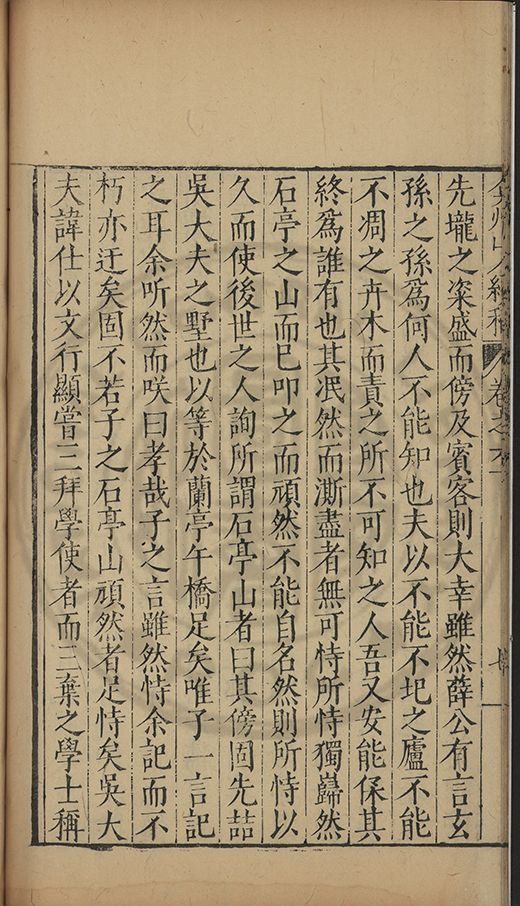 弇州山人續稿 卷之六十
先壠之粢盛而傍及賓客則大幸雖然薛公有言玄
孫之孫爲何人不能知也夫以不能不圯之廬不能
不凋之卉木而責之所不可知之人吾又安能保其
終爲誰有也其泯然而澌盡者無可恃所恃獨巋然
石亭之山而已叩之而頑然不能自名然則所恃以
久而使後世之人詢所謂石亭山者曰其傍固先喆
吳大夫之墅也以等於蘭亭午橋足矣唯子一言記
之耳余听然而咲曰孝哉子之言雖然恃余記而不
朽亦迂矣固不若子之石亭山頑然者足恃矣吳大
夫諱仕以文行顯嘗三拜學使者而三棄之學士稱